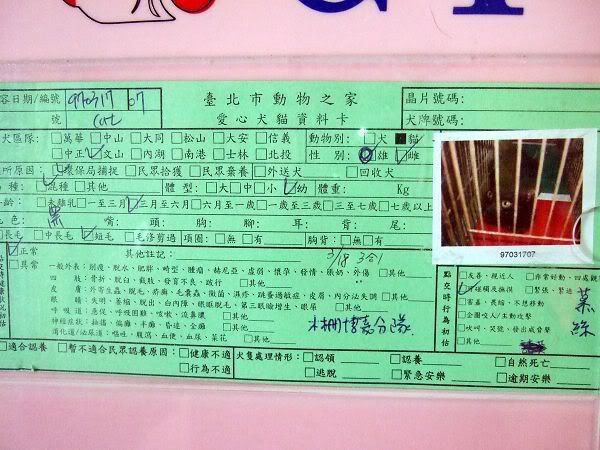 容日期/編號 970317 07 臺北市動物之家 晶片號碼:
號 愛心犬貓資料卡 犬牌號碼:
犬區隊: □萬華 □中山 □大同 □松山 □大安 □信義 動物別: □犬 ■貓
□中正 □文山 □內湖 □南港 □士林 □北投 性別: □雄 □雌
所原因: □環保局捕捉 □民眾拾獲 □民眾棄養 □外送犬 □回收犬
種: □混種 □其他 體型: □大 □中 □小 □幼 體重: Kg
齡: □未離乳 □一至三月 □三月至六月 □六月至一歲 □一歲至三歲 □三歲至七歲 □七歲以上
毛色: 黑 嘴: 頭: 胸: 腳: 耳: 背: 尾:
□長毛 □中長毛 □短毛 □毛修剪過 項圈: □無 □有 胸背: □無 □有
97031707
□正常 其他註記: 3/18 3合1
□異常
一般外表: 削瘦, 脫水, 肥胖, 畸型, 腫瘤, 赫尼亞, 虛弱, 懷孕, 發情, 張奶, 外傷 □其他
四肢: 骨折, 脫臼, 截肢, 發育不良, 跛行 □其他
皮膚: 外寄生蟲, 脫毛, 疥癬, 毛囊蟲, 黴菌, 濕疹, 跳蚤過敏症, 皮屑, 內分泌失調 □其他
眼睛: 失明, 萎縮, 脫出, 白內障, 眼瞼脫毛, 第三眼瞼增生, 眼屎 □其他
呼吸道: 急促, 呼吸困難, 咳嗽, 流鼻水 □其他
神經症狀: 抽搐, 偏癱, 半癱, 昏迷, 全癱 □其他
消化道/泌尿道: 嘔吐, 腹瀉, 血便, 血尿, 菜花 □其他
木柵博嘉分隊
點交時行為初估
□友善, 親近人 □非常好動, 四處觀
□可碰觸反撫摸 □緊張, 緊迫
□害羞, 畏縮, 不想移動
□企圖咬人/主動攻擊
□吠叫, 哭號, 發出威音聲
□其他
慕絲
□適合認養 □暫不適合民眾認養原因: □健康不適 □行為不適
犬隻處理情形: □認領 □認養 □自然死亡
□逃脫 □緊急安樂 □逾期安樂